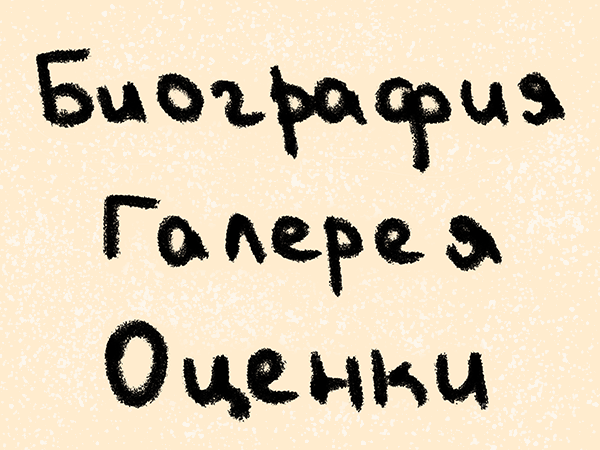 Биография
Галерея
Оценки